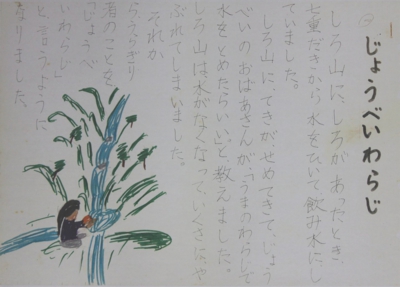 じょうべいわらじ
しろ山に、しろがあったとき、
七重だきから水をひいて飲み水にし
ていました。
しろ山に、てきが、せめてきて、じょう
べいのおばあさんが、「うまのわらじで
水をとめたらいい」と教えました。
しろ山は水がなくなって、いくさにや
ぶれてしまいました。
それか
らうらぎり
者のことを
「じょうべ
いわらじ」
と言うように
なりました。